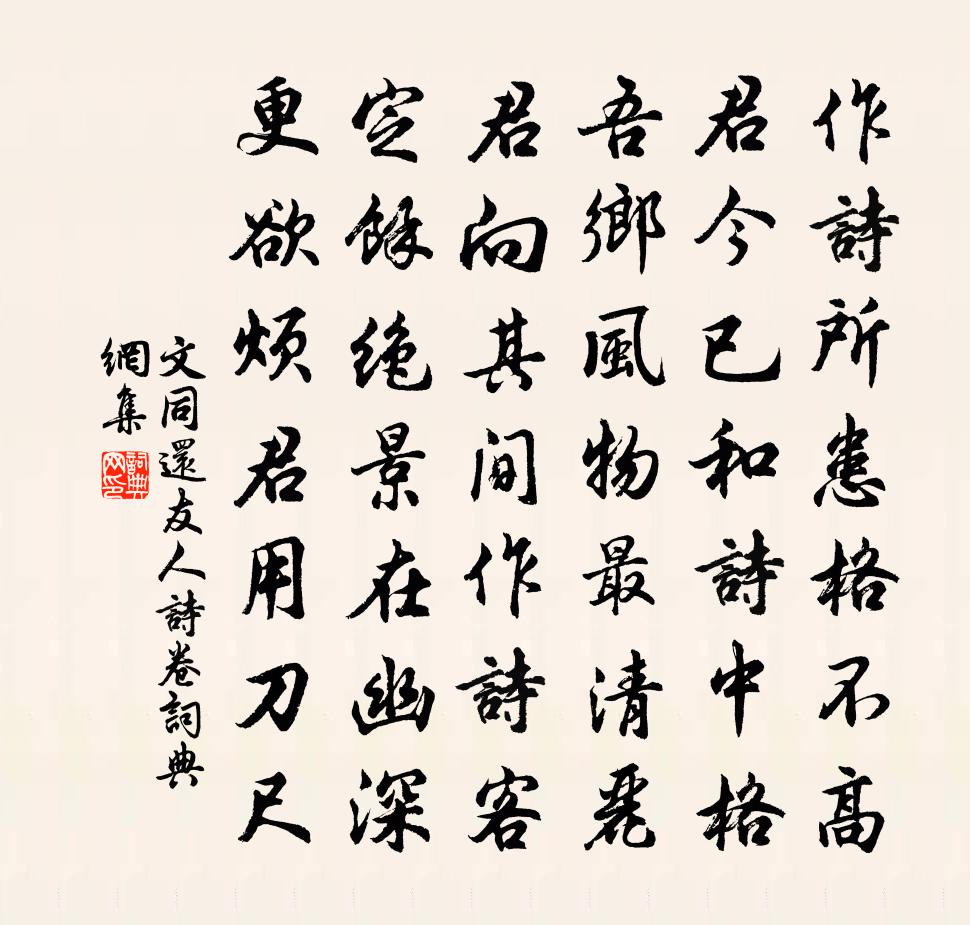 作詩所患格不高
君今已和詩中格
吾鄉風物最清麗
君向其間作詩客
定餘絶景在幽深
更欲煩君用刀尺
文同還友人詩卷詞典
網集
詞典
网印